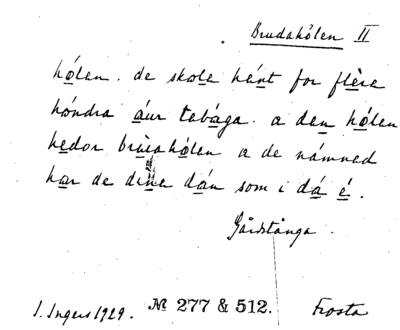 Brudahölen II
hölen. de skole hänt for flère
hóndra áur tebága. a den hölen
hedor brúahölen a de námned
har de dán som i dá é.
Gårdstånga.
I. Ingers 1929. № 277 & 512. Frosta